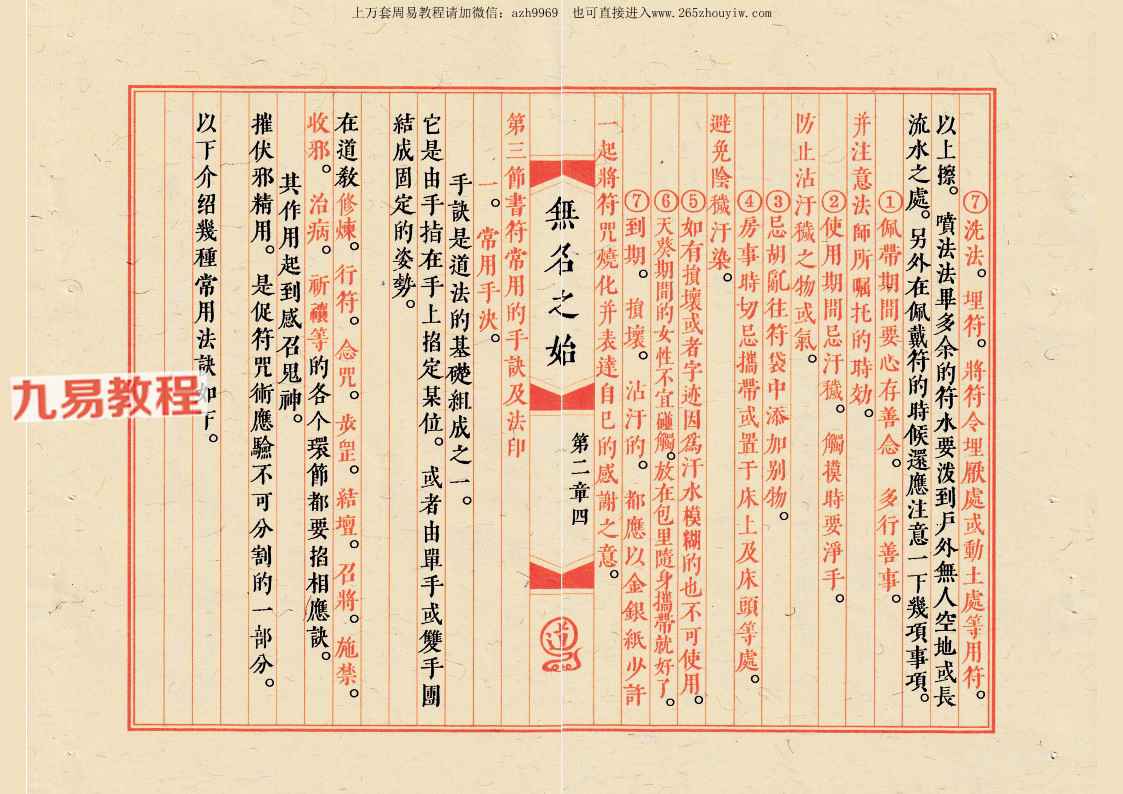 上万套周易教程请加微信：azh9969 也可直接进入www.265zhouyiw.com
⑦洗法。埋符。將符令埋厭處或動土處等用符。
以上擦。噴法法畢多余的符水要潑到戶外無人空地或長
流水之處。另外在佩戴符的時候還應注意一下幾項事項。
①佩帶期間要心存善念。多行善事。
并注意法師所囑托的時効。
②使用期間忌汙穢。觸摸時要淨手。
防止沾汙穢之物或氣。
③忌胡亂往符袋中添加别物。
④房事時切忌攜帶或置于床上及床頭等處。
避免陰穢汙染。
⑤如有損壞或者字迹因為汗水模糊的也不可使用。
⑥天葵期間的女性不宜碰觸。放在包里隨身攜帶就好了。
⑦到期。損壞。沾汙的。都應以金銀紙少許
一起將符咒燒化并表達自已的感謝之意。
無名之始
第二章四
道
第三節書符常用的手訣及法印
一。常用手決。
手訣是道法的基礎組成之一。
它是由手指在手上掐定某位。或者由單手或雙手團
結成固定的姿勢。
在道教修煉。行符。念咒。步罡。結壇。召將。施禁。
收邪。治病。祈禳等的各个環節都要掐相應訣。
其作用起到感召鬼神。
摧伏邪精用。是促符咒術應驗不可分割的一部分。
以下介绍幾種常用法訣如下。
九易教程